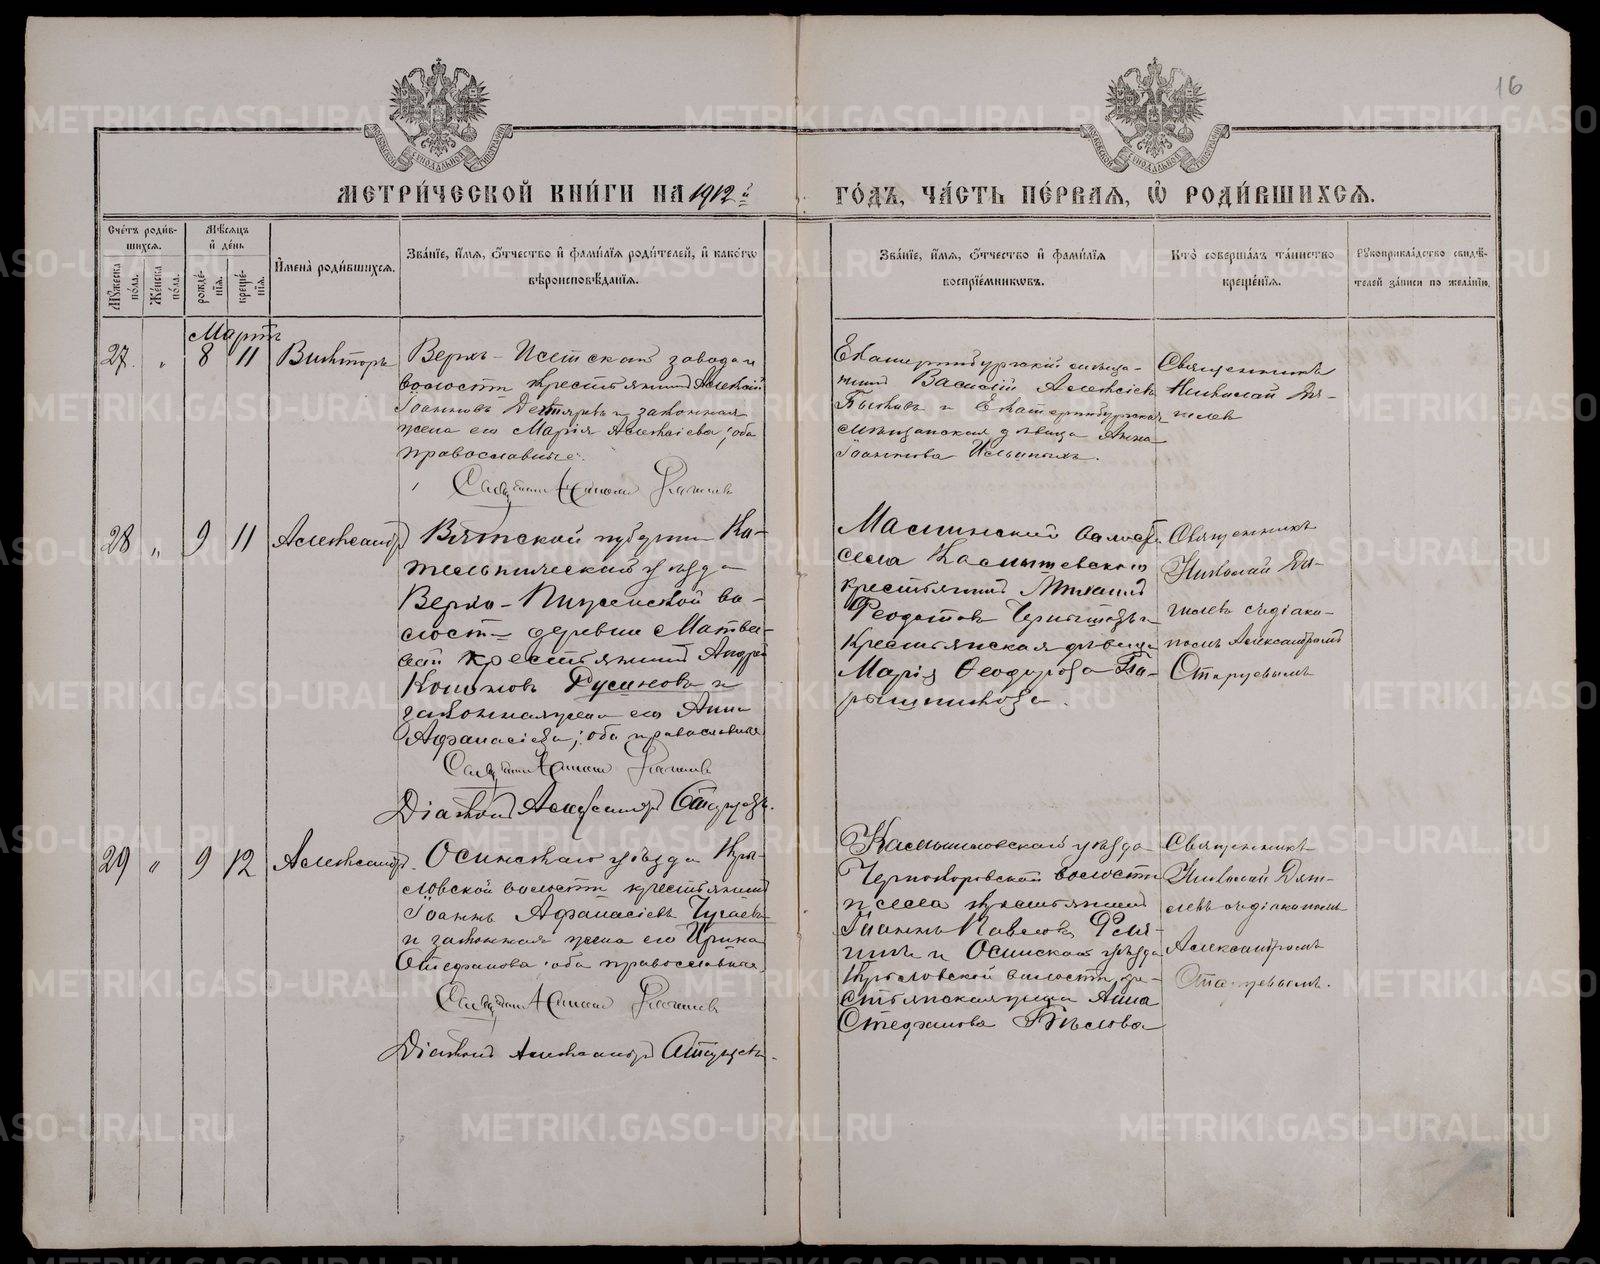 16
МЕТРИ́ЧЕСКОЙ КНИ́ГИ НА 1912й ГО́ДЪ, ЧА́СТЬ ПЕ́РВАЯ, Ѡ РОДИ́ВШИХСЯ.
Сче́тъ роди́в-
шихся.
Му́жеска по́ла.
Же́нска по́ла.
Мѣ́сяцъ
и҆ де́нь
рожде́-
нїѧ.
креще́-
нїѧ.
И҆мена̀ роди́вшихся.
Зва́нїе, и҆́мѧ, ѻ҆́тчество и҆ фами́лїѧ роди́телей, и҆ како́гѡ
вѣроисповѣ́данїѧ.
Зва́нїе, и҆́мѧ, ѻ҆́тчество и҆ фами́лїѧ
воспрїе́мникѡвъ.
Кто̀ соверша́лъ та́инство
креще́нїѧ.
Рукоприкла́дство свидѣ́-
телей за́писи по жела́нїю.
Мартъ
27. " 8 11 Викторъ
Верхъ-Исетскаго завода и
волости крестьянинъ Алексѣй
Іоанновъ Дегтяревъ и законная
жена его Марія Алексіева; оба
православные.
Екатеринбургскій мѣща-
нинъ Василій Алексіевъ
Быковъ и Екатеринбургская
мѣщанская дѣвица Анна
Іоаннова Ильиныхъ.
Священникъ
Николай Дя-
гилевъ
28 " 9 11 Александръ
Вятской губерніи Ко-
тельническаго уѣзда
Верхо-Пижемской во-
лости деревни Матвѣе-
вой крестьянинъ Андрей
Кононовъ Русиновъ и
законная жена его Анна
Афанасіева; оба православные
Діаконъ Александръ Старцевъ.
Маминской волости
села
крестьянинъ Михаилъ
Феодотовъ Чернышевъ и
крестьянская дѣвица
Марія Ѳеодорова Ба-
рышникова.
Священникъ
Николай Дя-
гилевъ съ діако-
номъ Александромъ
Старцевымъ
29 " 9 12 Александръ.
Осинскаго уѣзда Кры-
ловской волости крестьянинъ
Іоаннъ Афанасіевъ Чугаевъ
и законная жена его Ирина
Стефанова оба православные.
Діаконъ Александръ Старцевъ.
Камышловскаго уѣзда
Черкокоровской волости
и села крестьянинъ
Іоаннъ Павловъ
и Осинскаго уѣзда
Крыловской волости кре-
стьянская жена Анна
Стефанова Бѣлова
Священникъ
Николай Дяги-
левъ съ діакономъ
Александромъ
Старцевымъ.
METRIKI.GASO-URAL.RU